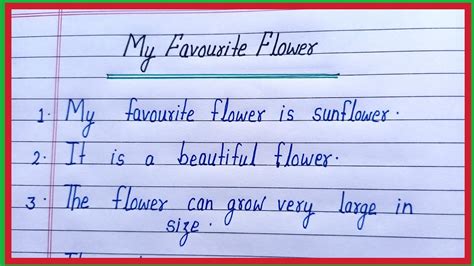 My Favourite Flower
1. My favourite flower is sunflower.
2. It is a beautiful flower.
3. The flower can grow very large in
size.